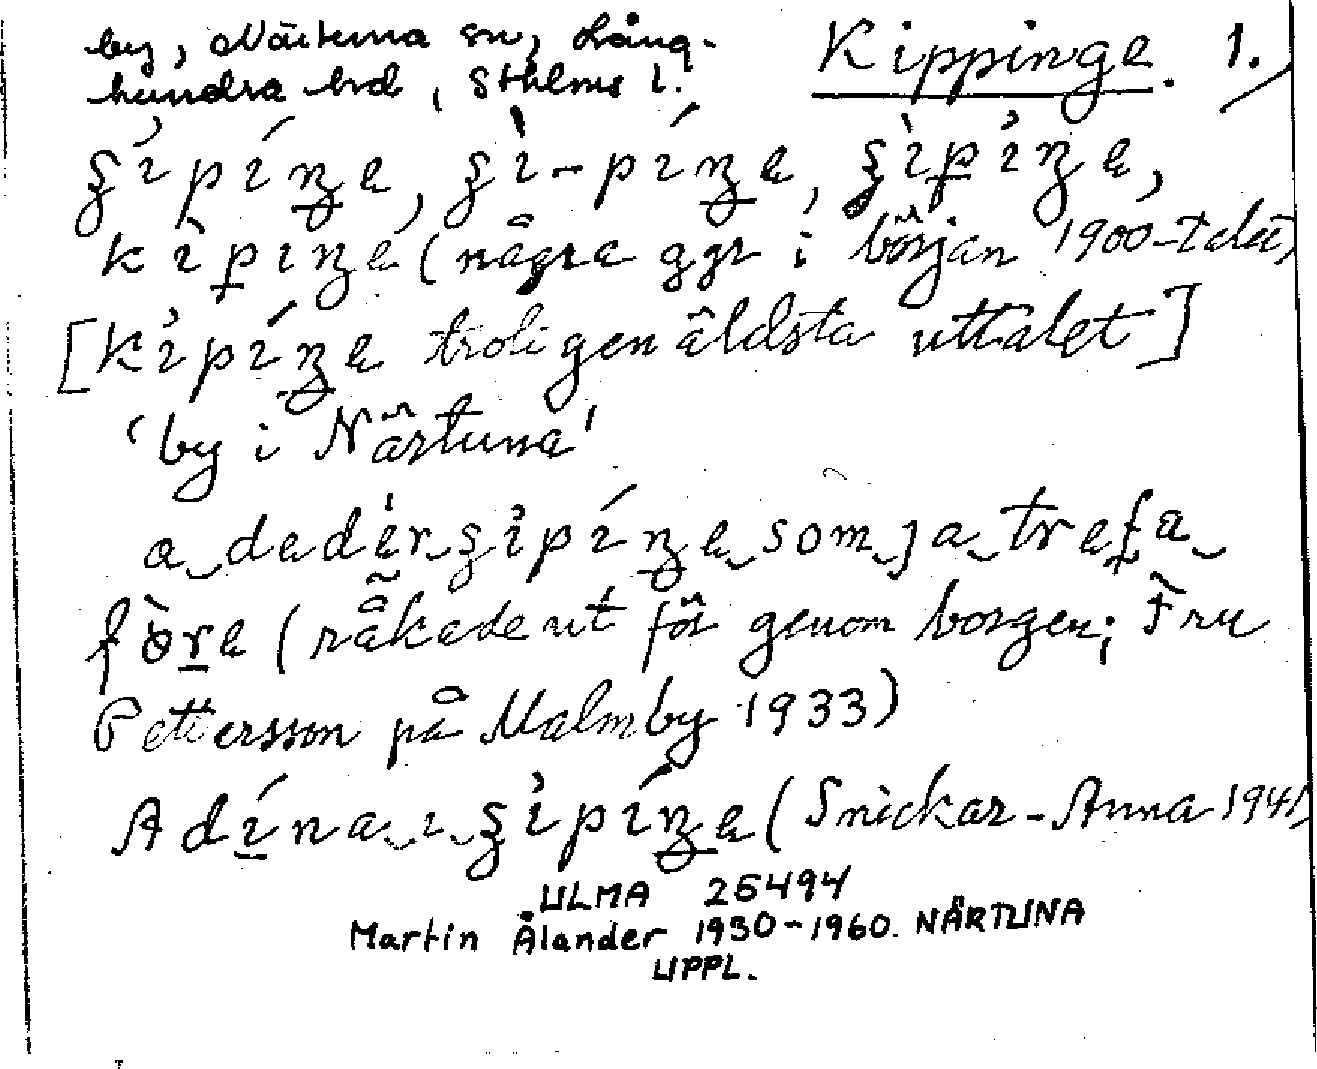 by, Närtuna sn, Lång-
hundra hd, Sthlms l.
Kippinge. 1.
ʂípíŋe, ʂì-píŋe, ʂìpíŋe,
kìpiŋe (några ggr i början 1900-talet)
[kipíŋe troligen äldsta uttalet]
'by i Närtuna'
a de dér ʂipíŋe som ja trefa
fòre (råkade ut för genom borgen; Fru
Pettersson på Malmby 1933)
Adína i ʂipíŋe (Snickar-Anna 1941)
ULMA 26494
Martin Ålander 1930-1960. NÄRTUNA
UPPL.